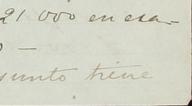 21 000 en esa-
o —
sunto tiene